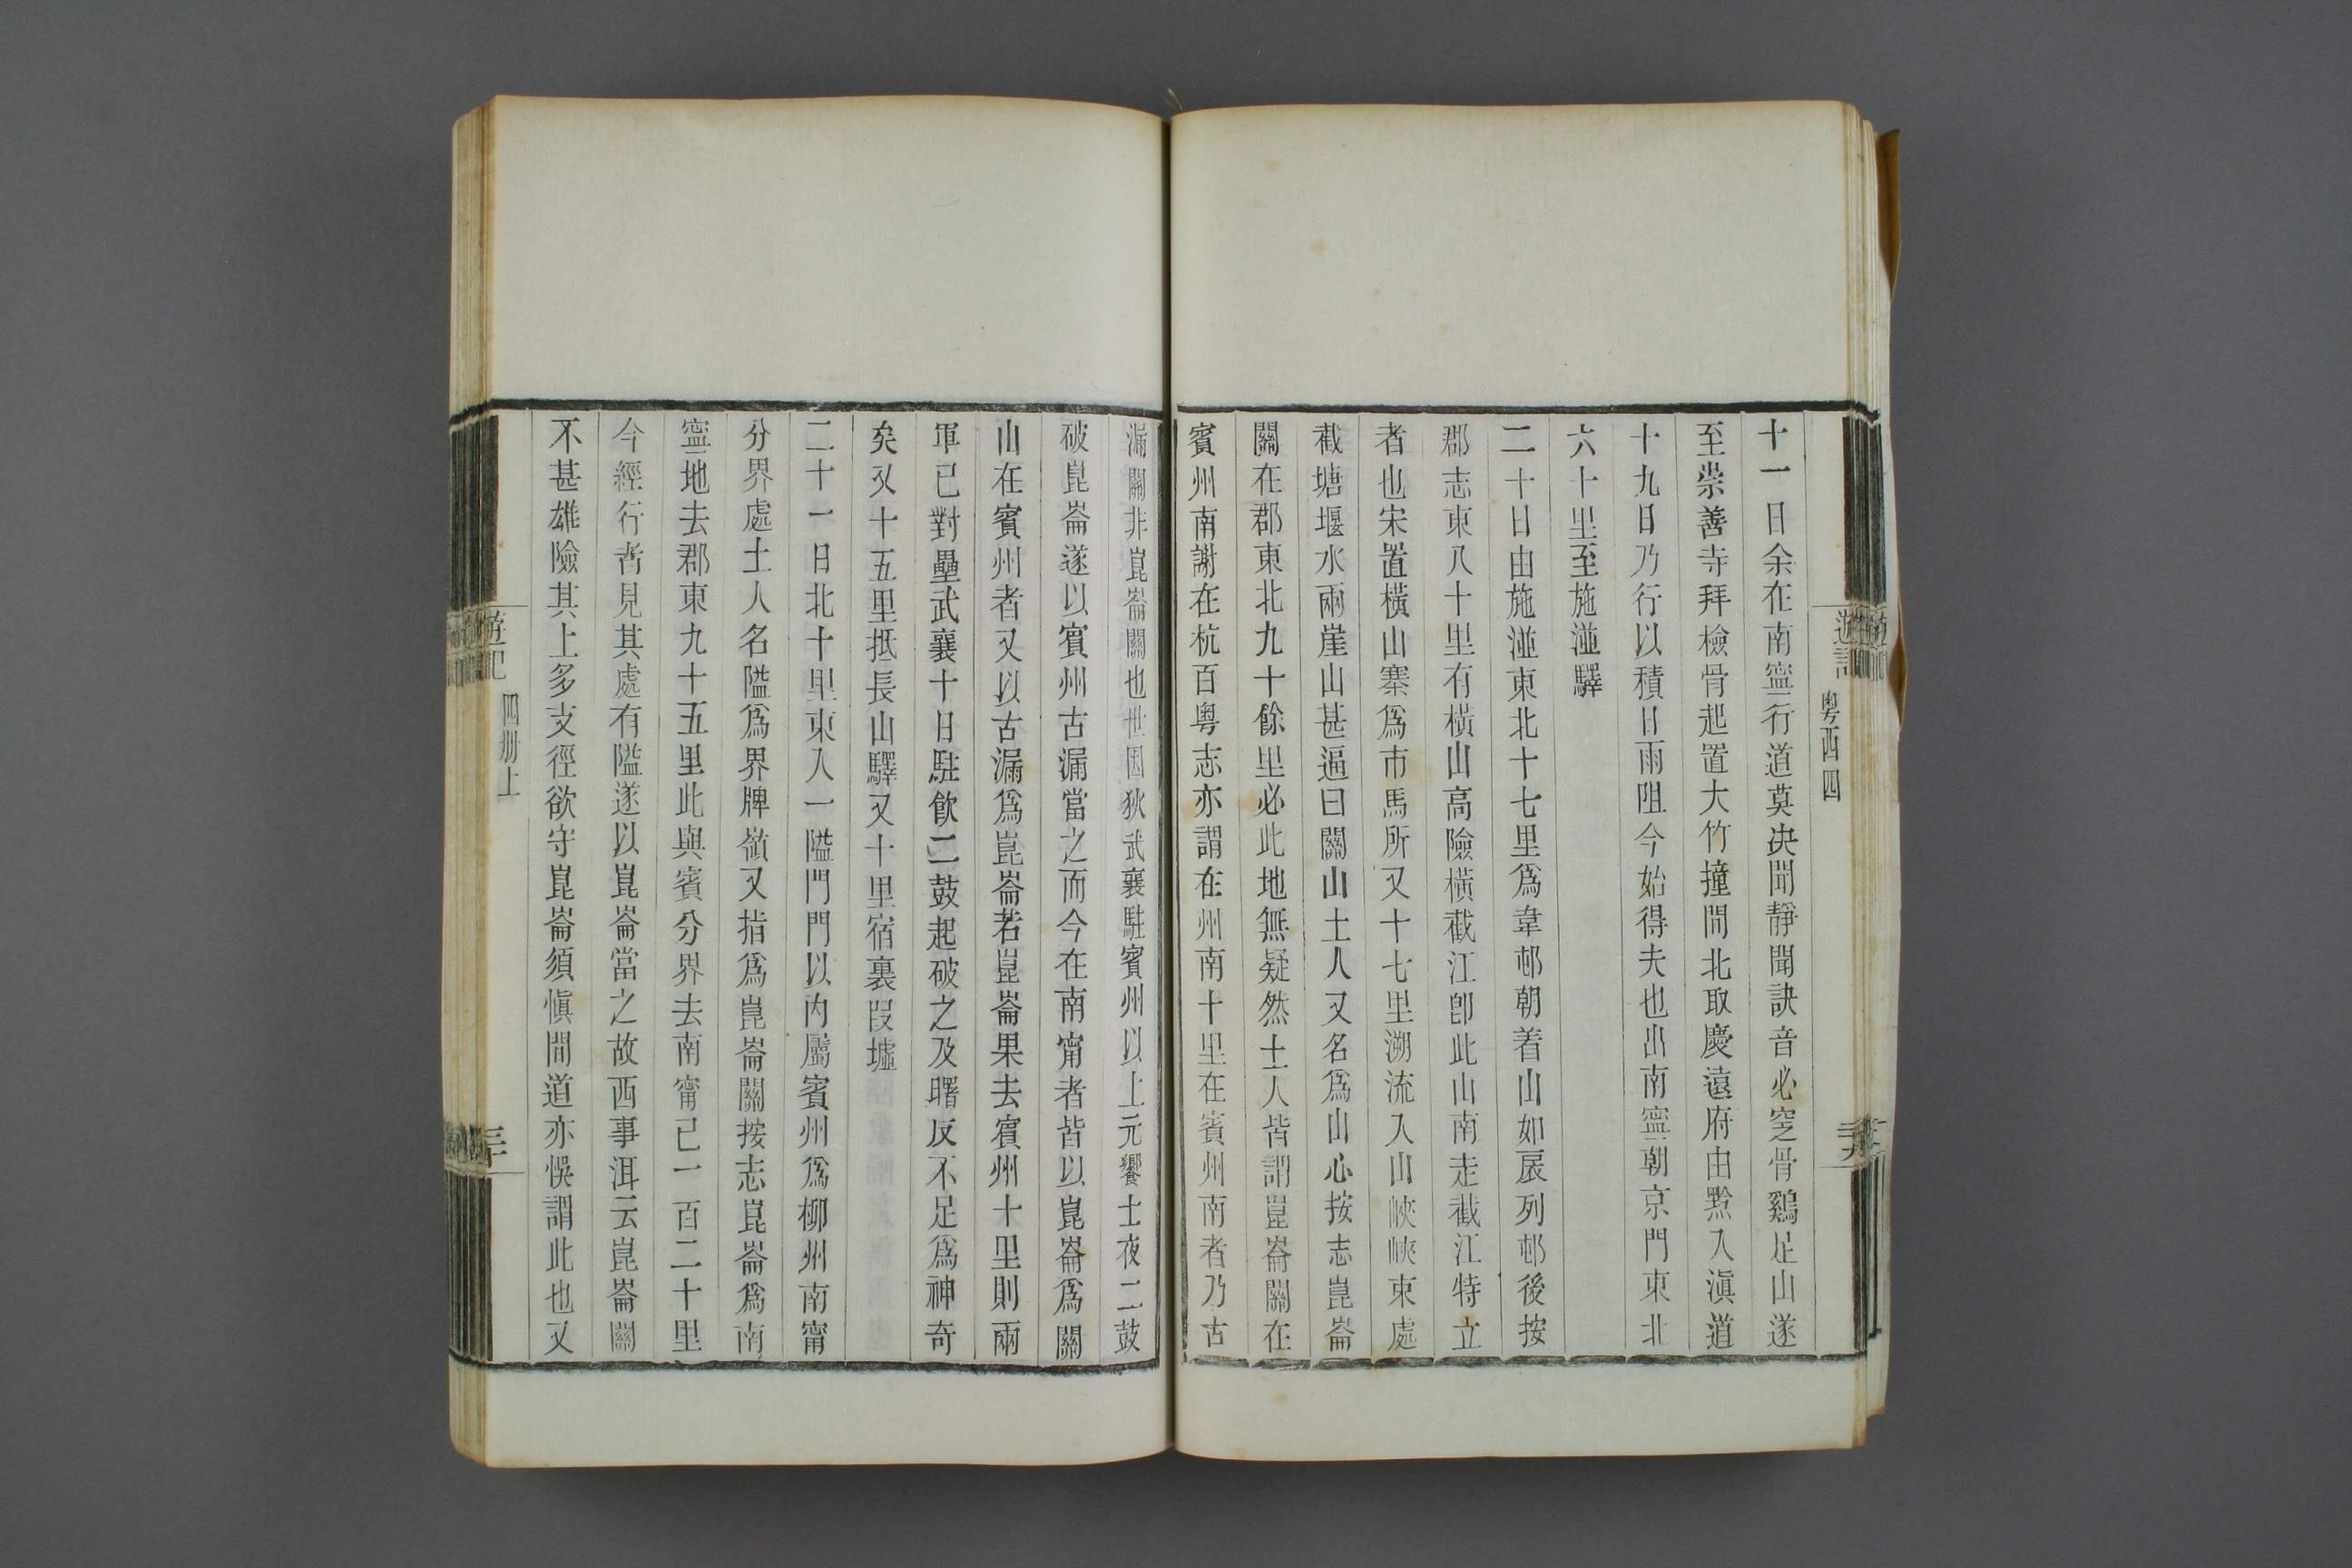 遊記
粵西四
十一日余在南寧行道莫決聞靜聞訣音必窆骨鷄足山遂
至崇善寺拜檢骨起置大竹撞間北取慶遠府由黔入滇道
十九日乃行以積日雨阻今始得夫也出南寧朝京門東北
六十里至施湴驛
二十日由施湴東北十七里爲韋邨朝着山如扆列邨後按
郡志東八十里有橫山高險橫截江卽此山南走截江特立
者也宋置橫山寨爲市馬所又十七里溯流入山峽峽東處
截塘堰水兩崖山甚逼曰關山土人又名爲山心按志崑崙
關在郡東北九十餘里必此地無疑然土人皆謂崑崙關在
賓州南謝在杭百粵志亦謂在州南十里在賓州南者乃古
漏關非崑崙關也世因狄武襄駐賓州以上元饗士夜二鼓
破崑崙遂以賓州古漏當之而今在南甯者皆以崑崙爲關
山在賓州者又以古漏爲崑崙若崑崙果去賓州十里則兩
軍已對壘武襄十日駐飮二鼓起破之及曙反不足爲神奇
矣又十五里抵長山驛又十里宿裏叚墟
二十一日北十里東入一隘門門以内屬賓州爲柳州南甯
分界處土人名隘爲界牌嶺又指爲崑崙關按志崑崙爲南
寧地去郡東九十五里此與賓分界去南甯已一百二十里
今經行者見其處有隘遂以崑崙當之故西事洱云崑崙關
不甚雄險其上多支徑欲守崑崙須愼間道亦悞謂此也又
遊記
四册上
三十